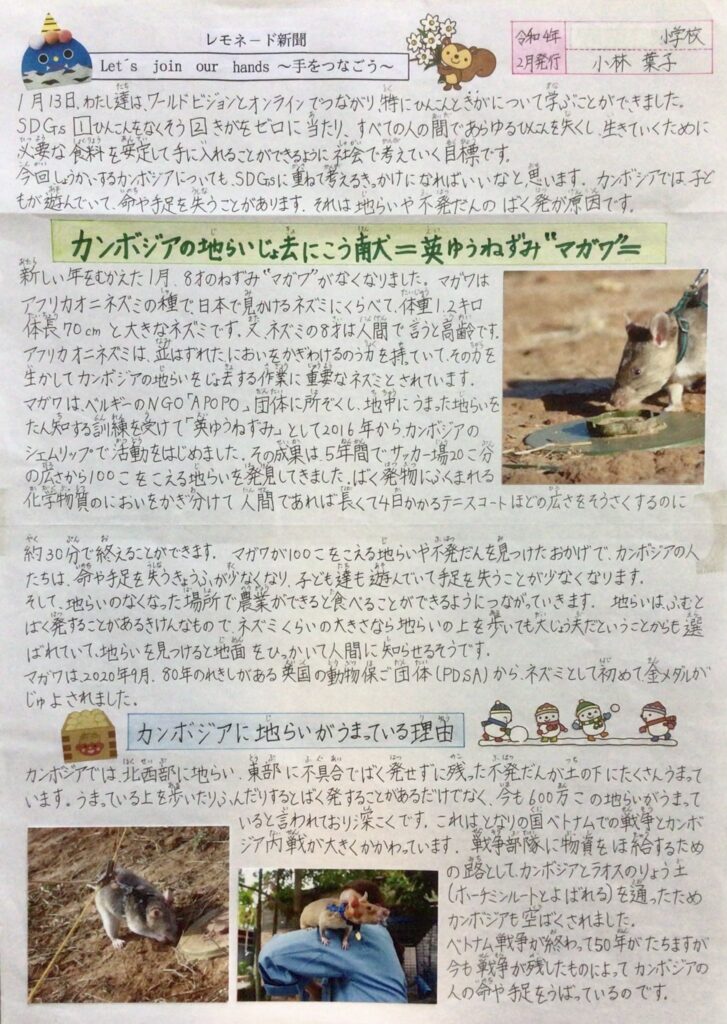 レモネード新聞
Let's join our hands ～手をつなごう～
令和4年
2月発行
小学校
小林 葉子
1月13日、わたし達は、ワールドビジョンとオンラインでつながり、特にひんこんときがについて学ぶことができました。
SDGs 1 ひんこんをなくそう 2 きがをゼロに 当たり、すべての人の間であらゆるひんこんを失くし、生きていくために
必要な食料を安定して手に入れることができるように社会で考えていく目標です。
今回しょうかいするカンボジアについても、SDGsに重ねて考えるきっかけになればいいなと思います。カンボジアでは、子ど
もが遊んでいて、命や手足を失うことがあります。それは地らいや不発だんのばく発が原因です。
カンボジアの地らいじょ去にこう献犬＝英ゆうねずみ“マガワ”＝
新しい年をむかえた1月、8才のねずみ“マガワ”がなくなりました。マガワは
アフリカオニネズミの種で、日本で見かけるネズミにくらべて、体重1.2キロ
体長70cmと大きなネズミです。又、ネズミの8才は人間で言うと高齢です。
アフリカオニネズミは、並はずれたにおいをかぎわけるのう力を持ていて、その力を
生かしてカンボジアの地らいをじょ去する作業に重要なネズミとされています。
マガワは、ベルギーのNGO「APOPO」団体に所ぞくし、地中にうまった地らいを
たん知する訓練を受けて「英ゆうねずみ」として2016年から、カンボジアの
シェムリップで活動をはじめました。その成果は、5年間でサッカー場20こ分
の広さから100こをこえる地らいを発見してきました。ばく発物にふくまれる
化学物質のにおいをかぎ分けて人間であれば長くて4日かかるテニスコートほどの広さをそうさくするのに
約30分で終えることができます。マガワが100こをこえる地らいや不発だんを見つけたおかげで、カンボジアの人
たちは、命や手足を失うきょうふが少なくなり、子ども達も遊んでいて手足を失うことが少なくなります。
そして、地らいのなくなった場所で農業ができると食べることができるようにつながっていきます。地らいは、ふむと
ばく発することがあるきけんなもので、ネズミくらいの大きさなら地らいの上を歩いても大じょう夫だということからも選
ばれていて、地らいを見つけると地面をひっかいて人間に知らせるそうです。
マガワは、2020年9月、80年のれきしがある英国の動物保ご団体(PDSA)から、ネズミとして初めて金メダルが
じゅよされました。
カンボジアに地らいがうまっている理由
カンボジアでは、北西部に地らい、東部に不具合でばく発せずに残った不発だんが土の下にたくさんうまって
います。うまっている上を歩いたりふんだりするとばく発することがあるだけでなく、今も600万この地らいがうまって
いると言われており深こくです。これはとなりの国ベトナムでの戦争とカンボ
ジア内戦が大きくかかわっています。戦争部隊に物資をほ給するため
の路として、カンボジアとラオスのりょう土
(ホーチミンルートとよばれる)を通ったため
カンボジアも空ばくされました。
ベトナム戦争が終わって50年がたちますが
今も戦争が残したものによってカンボジアの
人の命や手足をうばっているのです。